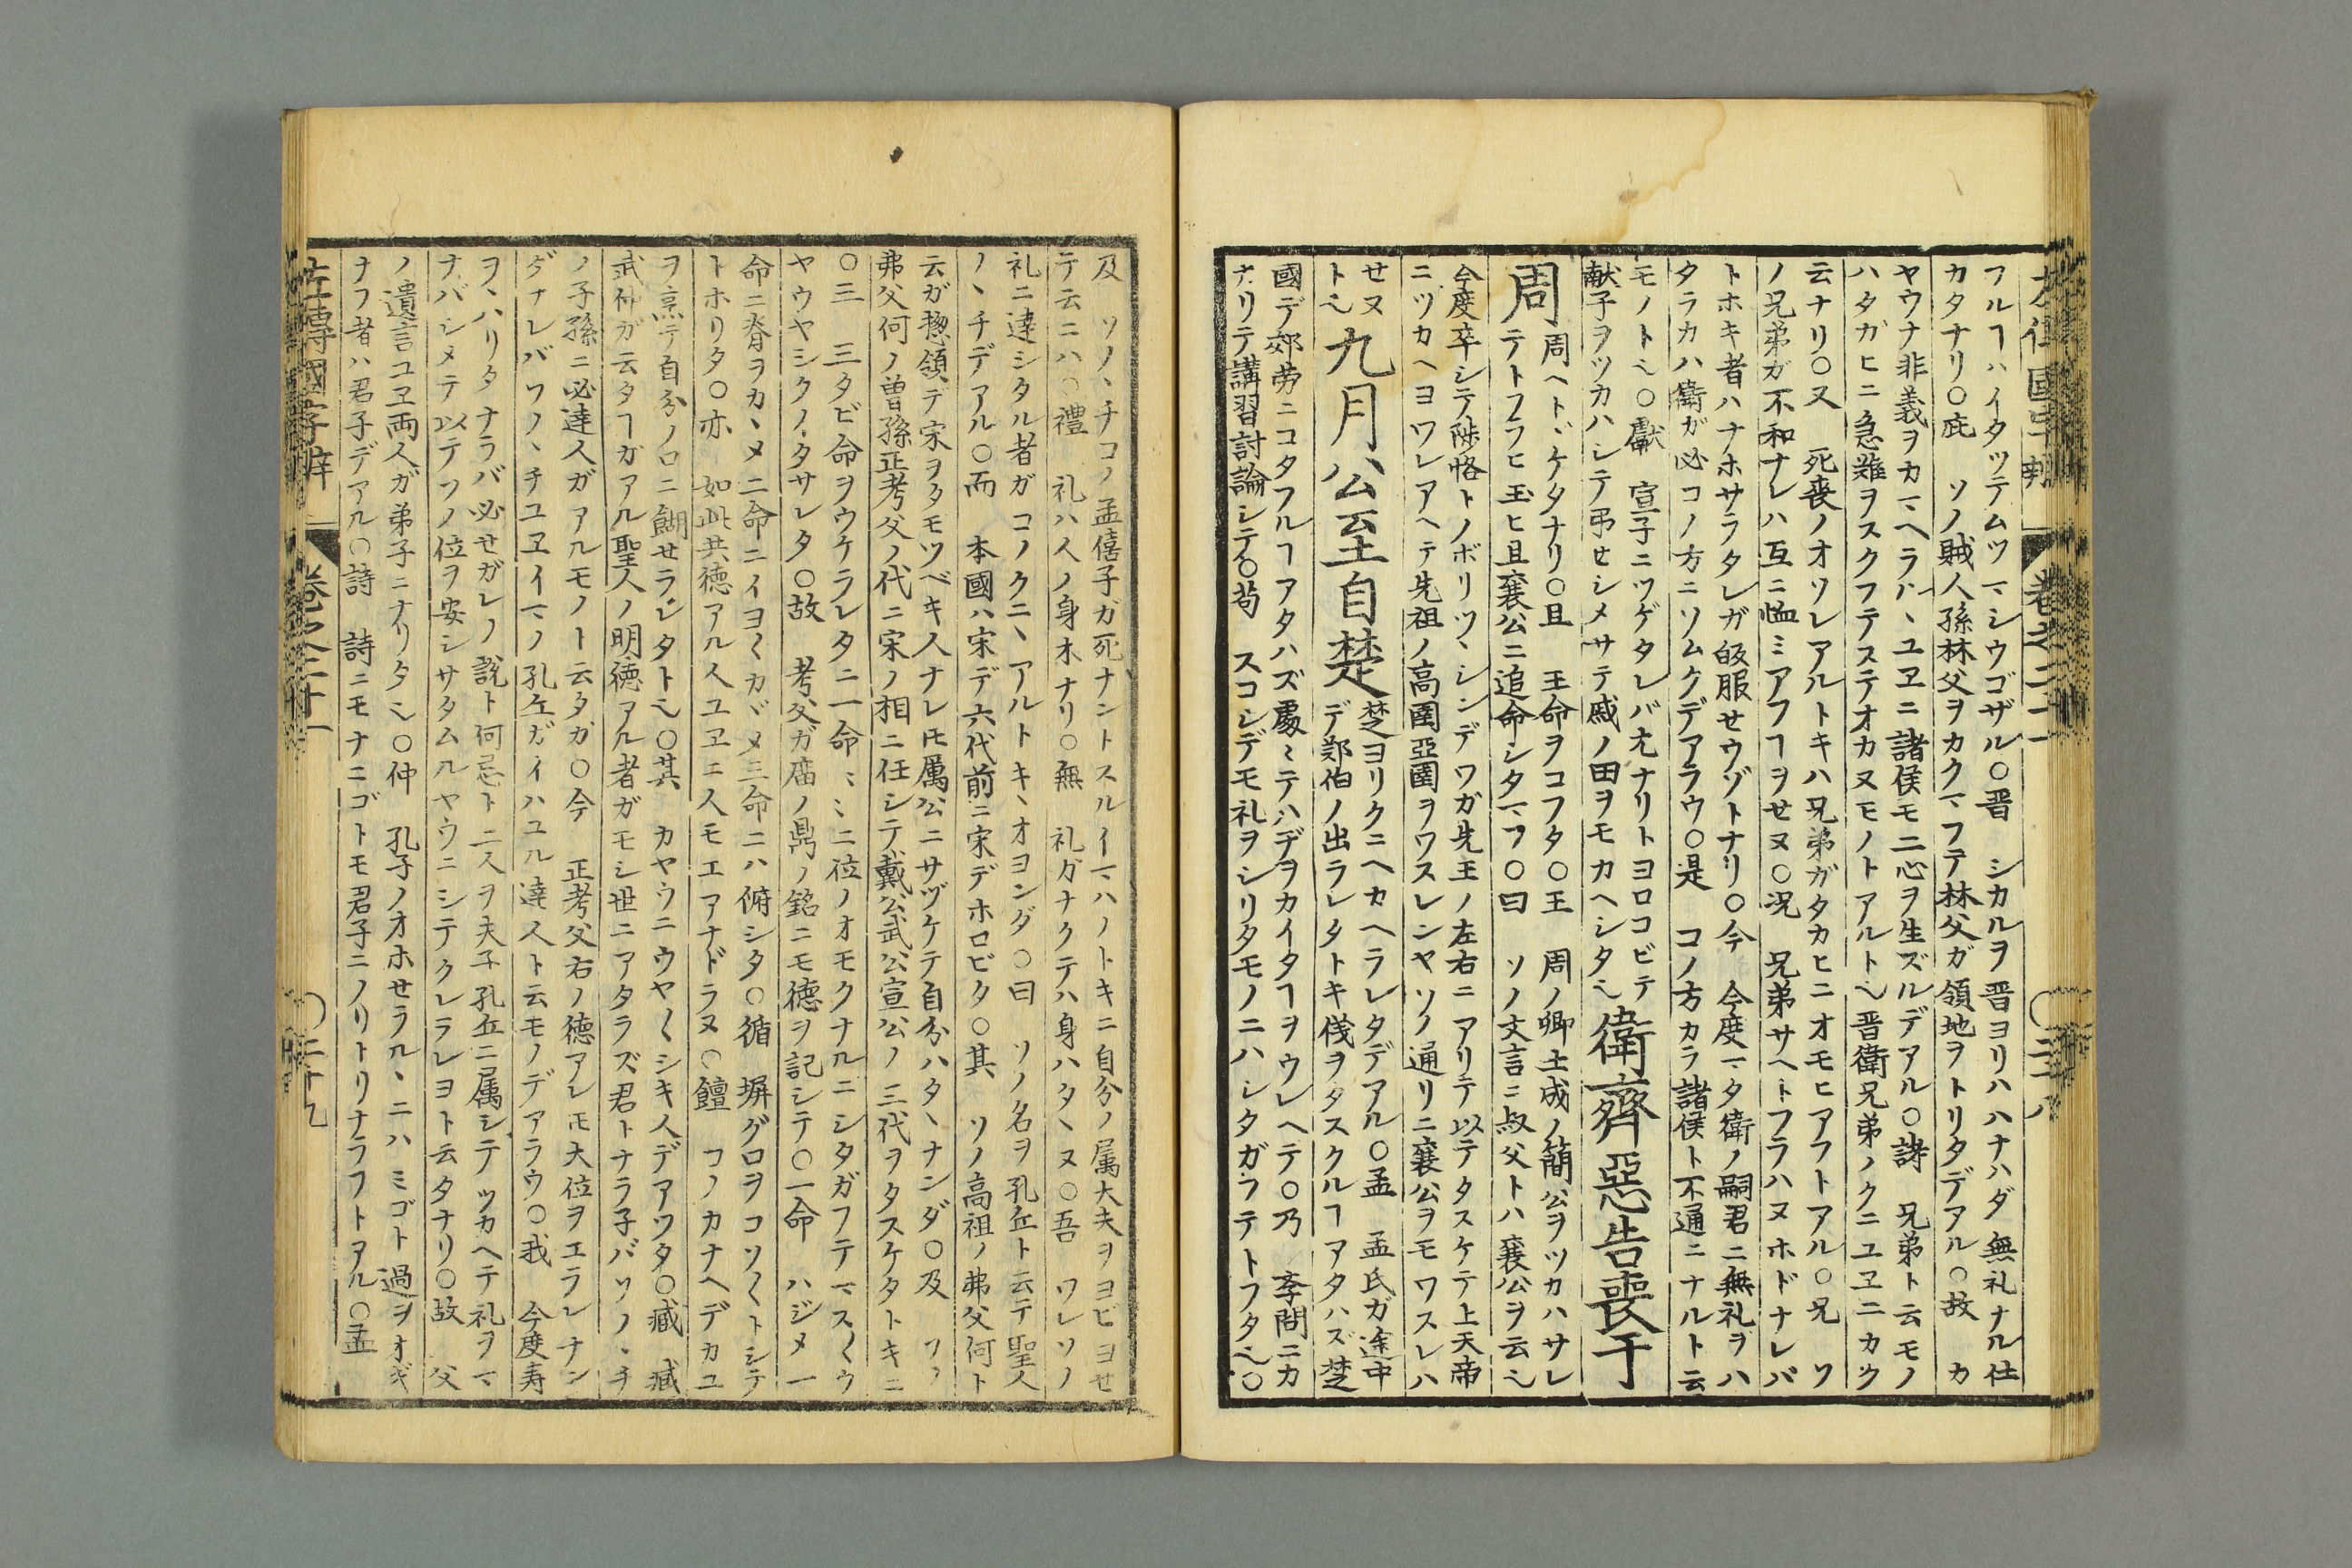 左傳國字辨 卷之二十一 ○二十八
アルヿハイタツテムツマシウゴザル○晋 シカルヲ晋ヨリハハナハダ無礼ナル仕
カタナリ○庇 ソノ賊人孫林父ヲカクマフテ林父ガ領地ヲトリタデアル○故 カ
ヤウナ非義ヲカマヘラルヽユヱニ諸侯モ二心ヲ生ズルデアル○詩 兄弟ト云モノ
ハタガヒニ急難ヲスクフテステオカヌモノトアルト也晋衛兄弟ノクニユヱニカク
云ナリ○又 死喪ノオソレアルトキハ兄弟ガタカヒニオモヒアフトアル○兄 ソ
ノ兄弟ガ不和ナレハ互ニ恤ミアフヿヲせヌ○况 兄弟サヘトフラハヌホドナレバ
トホキ者ハナホサラタレガ皈服せウゾトナリ○今 今度マタ衛ノ嗣君ニ無礼ヲハ
タラカハ衛ガ必コノ方ニソムクデアラウ○是 コノ方カラ諸侯ト不通ニナルト云
モノト也○獻 宣子ニツゲタレバ尤ナリトヨロコビテ
献子ヲツカハシテ弔せシメサテ戚ノ田ヲモカヘシタ也
衛齊惡告喪于
周
周ヘトヾケタナリ○且 王命ヲコフタ○王 周ノ卿士成ノ簡公ヲツカハサレ
テトフラヒ玉ヒ且襄公ニ追命シタマフ○曰 ソノ文言ニ叔父トハ襄公ヲ云也
今度卒シテ陟恪トノボリツヽシンデワガ先王ノ左右ニアリテ以テタスケテ上天帝
ニツカヘヨワレアヘテ先祖ノ高圉亞圉ヲワスレンヤソノ通リニ襄公ヲモワスレハ
せヌ
ト也
九月公至自楚
楚ヨリクニヘカヘラレタデアル○孟 孟氏ガ途中
デ鄭伯ノ出ラレタトキ儀ヲタスクルヿアタハズ楚
國デ郊労ニコタフルヿアタハズ處ミテハヂヲカイタヿヲウレヘテ○乃 季問ニカ
ナリテ講習討論シテ○苟 スコシデモ礼ヲシリタモノニハシタガフテトフタ也○
及 ソノヽチコノ孟僖子ガ死ナントスルイマハノトキニ自分ノ属大夫ヲヨビヨせ
テ云ニハ○禮 礼ハ人ノ身木ナリ○無 礼ガナクテハ身ハタヽヌ○吾 ワレソノ
礼ニ達シタル者ガコノクニヽアルトキヽオヨンダ○曰 ソノ名ヲ孔丘ト云テ聖人
ノヽチデアル○而 本國ハ宋デ六代前ニ宋デホロビタ○其 ソノ高祖ノ弗父何ト
云ガ惣領デ宋ヲタモツベキ人ナレ𪜈厲公ニサヅケテ自分ハタヽナンダ○及 ソノ
弗父何ノ曽孫正考父ノ代ニ宋ノ相ニ任シテ戴公武公宣公ノ三代ヲタスケタトキニ
○三 三タビ命ヲウケラレタニ一命ミミニ位ノオモクナルニシタガフテマス〱ウ
ヤウヤシクノタサレタ○故 考父ガ庿ノ鼎ノ銘ニモ德ヲ記シテ○一命 ハジメ一
命ニ脊ヲカヽメ二命ニイヨ〱カヾメ三命ニハ俯シタ○循 塀グロヲコソ〱トシテ
トホリタ○亦 如此共德アル人ユヱニ人モエアナドラヌ○饘 コノカナヘデカユ
ヲ烹テ自分ノ口ニ餬せラレタト也○其 カヤウニウヤ〱シキ人デアツタ○臧 臧
武仲ガ云タヿガアル聖人ノ明德アル者ガモシ世ニアタラズ君トナラ子バソノヽチ
ノ子孫ニ必達人ガアルモノト云タガ○今 正考父右ノ德アレ𪜈大位ヲエラレナン
ダナレバソノヽチユヱイマノ孔丘ガイハユル達人ト云モノデアラウ○我 今度寿
ヲヽハリタナラバ必せガレノ說ト何忌ト二人ヲ夫子孔丘ニ属シテツカヘテ礼ヲマ
ナバシメテ以テソノ位ヲ安シサタムルヤウニシテクレラレヨト云タナリ○故 父
ノ遺言ユヱ両人ガ弟子ニナリタ也○仲 孔子ノオホせラルヽニハミゴト過ヲオギ
ナフ者ハ君子デアル○詩 詩ニモナニゴトモ君子ニノリトリナラフトアル○孟
左傳國字辨 卷之二十一 ○二十九